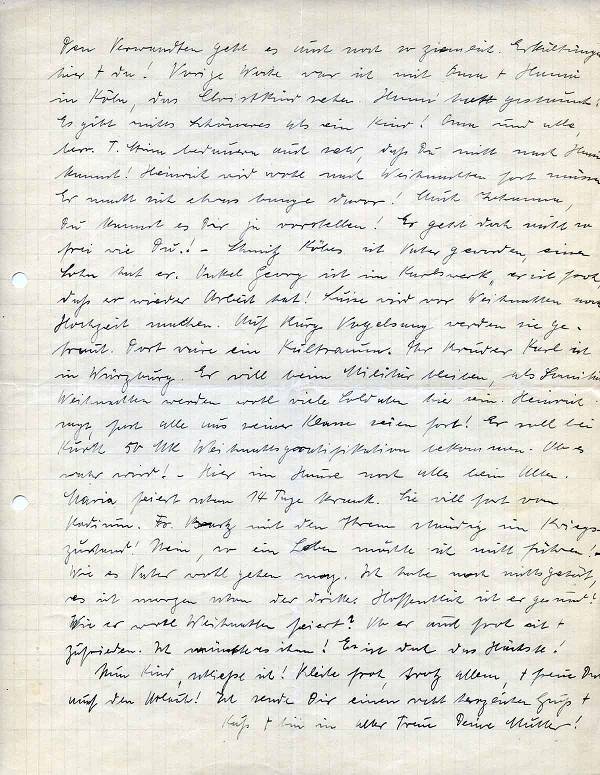 Den Verwandten geht es auch noch so ziemlich. Erkältungen
hier + da! Vorige Woche war ich mit Oma + Hanni
in Köln, das Christkind sehen. Hanni hat gestaunt!
Es gibt nichts Schöneres als ein Kind! Oma und alle,
bes. T. bedauern auch sehr, daß Du nicht nach Hause
kannst! Heinrich wird wohl nach Weihnachten fort müssen
Er macht sich etwas bange davor! Auch Johanna,
Du kannst es Dir ja vorstellen! Er geht doch nicht so
frei wie Du! – Schmitz Köbes ist Vater geworden, einen
Sohn hat er. Onkel Georg ist im Karlswerk, er ist froh,
daß er wieder Arbeit hat! Luise wird vor Weihnachten noch
Hochzeit machen. Auf Burg Vogelsang werden sie ge-
traut. Dort wäre ein Kultraum. Ihr Bruder Karl ist
in Würzburg. Er will beim Militär bleiben, als
Weihnachten werden wohl viele Soldaten hie sein. Heinrich
sagt, fast alle aus seiner Klasse seien fort! Er soll bei
50 Mk Weihnachtsgratifikation bekommen. Ob es
wahr wird! – Hier im Hause noch alles beim Alten.
Maria feiert schon 14 Tage krank. Sie will fort vom
Radium. Fr. mit den Ihren ständig im Kriegs-
zustand! Nein, so ein Leben möchte ich nicht führen!
Wie es Vater wohl gehen mag. Ich habe noch nichts gehört,
es ist morgen schon der dritte. Hoffentlich ist er gesund!
Wie er wohl Weihnachten feiert? Ob er auch froh ist +
zufrieden. Ich wünsche es ihm! Es ist doch das Höchste!
Nun Kind, schließe ich! Bleibe froh, trotz allem, + freue Dich
auf den Urlaub! Ich sende Dir einen recht herzlichen Gruß +
Kuß + bin in alter Treue Deine Mutter!